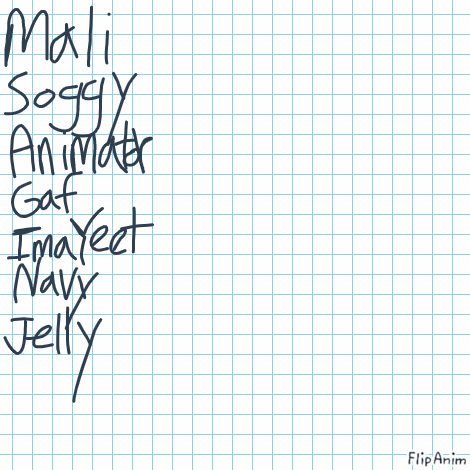 Mali
Soggy
Animator
Gaf
ImaYeet
Navy
Jelly
FlipAnim